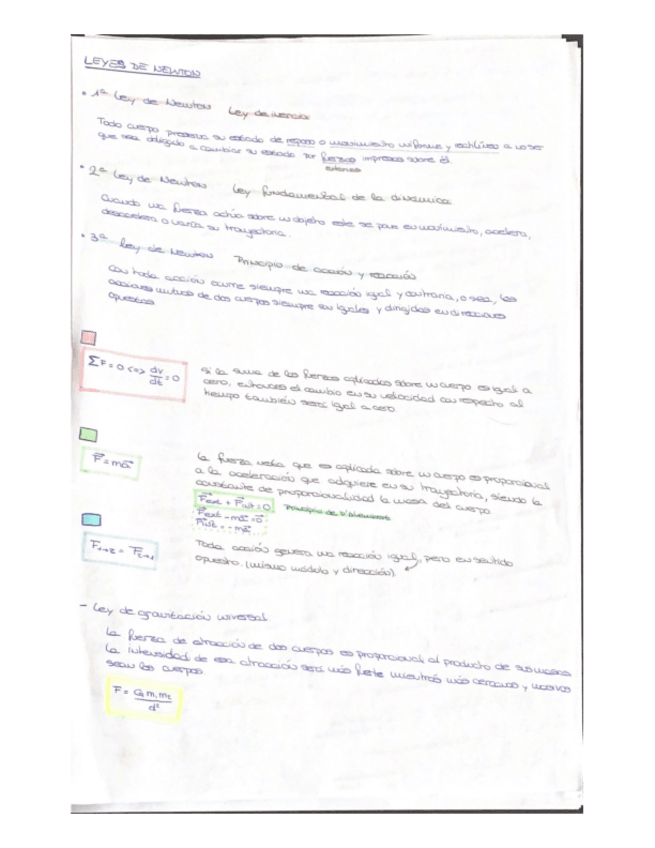 LEYES DE NEWTON
• 1ª Ley de Newton Ley de inercia
Todo cuerpo preserva su estado de reposo o movimiento uniforme y rectilíneo a no ser
que sea obligado a cambiar su estado por fuerzas impresas sobre él.
externas
• 2ª Ley de Newton Ley fundamental de la dinámica
Cuando una fuerza actúa sobre un objeto este se pone en movimiento, acelera,
desacelera o varía su trayectoria.
• 3ª Ley de Newton Principio de acción y reacción
Con toda acción ocurre siempre una reacción igual y contraria, o sea, las
acciones mutuas de dos cuerpos siempre son iguales y dirigidas en direcciones
opuestas
ΣF = 0 <=> dv/dt = 0
Si la suma de las fuerzas aplicadas sobre un cuerpo es igual a
cero, entonces el cambio en su velocidad con respecto al
tiempo también será igual a cero
F⃗ = ma⃗
La fuerza neta que es aplicada sobre un cuerpo es proporcional
a la aceleración que adquiere en su trayectoria, siendo la
constante de proporcionalidad la masa del cuerpo
F⃗ext + F⃗int = 0 Principio de D'Alembert
F⃗ext - ma⃗ = 0⃗
F⃗int = - ma⃗
F₁→₂ = F₂→₁
Toda acción genera una reacción igual, pero en sentido
opuesto. (mismo módulo y dirección)
- Ley de gravitación universal
La fuerza de atracción de dos cuerpos es proporcional al producto de sus masas
La intensidad de esa atracción será más fuerte mientras más cercanos y masivos
sean los cuerpos.
F = G m₁ m₂ / d²